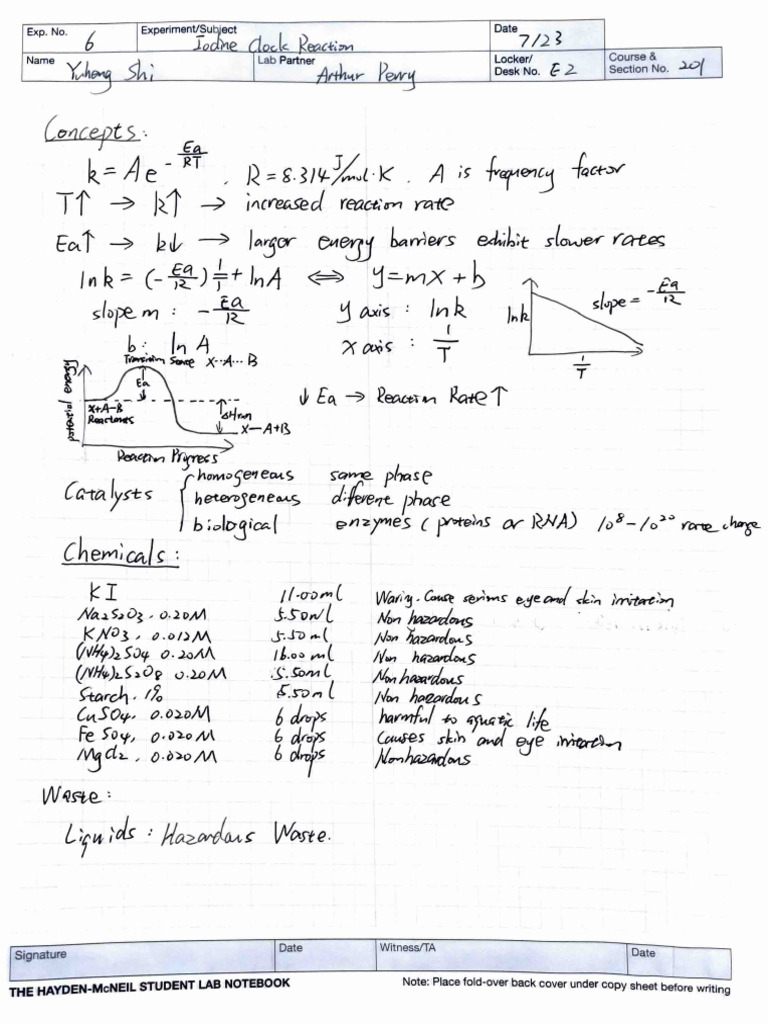 Exp. No. 6 Experiment/Subject Iodine Clock Reaction Date 7/23
Name Yuheng Shi Lab Partner Arthur Perry Locker/Desk No. E2 Course & Section No. 201
Concepts:
k = Ae^(-Ea/RT) , R = 8.314 J/mol·K . A is frequency factor
T↑ → k↑ → increased reaction rate
Ea↑ → k↓ → larger energy barriers exhibit slower rates
ln k = (-Ea/R) 1/T + ln A ⇔ y = mx + b
slope m : -Ea/R y axis : ln k
b: ln A x axis : 1/T
ln k slope = -Ea/R
1/T
Transition State X--A--B
potential energy
Ea
X+A-B
Reactants
ΔHrxn
X-A+B
Reaction Progress
↓ Ea → Reaction Rate ↑
Catalysts { homogeneous same phase
heterogeneous different phase
biological enzymes (proteins or RNA) 10^8 - 10^20 rate change
Chemicals:
KI 11.00ml Waring. Cause serious eye and skin irritation
Na2S2O3, 0.20M 5.50ml Non hazardous
KNO3, 0.012M 5.50 ml Non hazardous
(NH4)2SO4 0.20M 16.00 ml Non hazardous
(NH4)2S2O8 0.20M 5.50ml Non hazardous
Starch. 1% 5.50ml Non hazardous
CuSO4, 0.020M 6 drops harmful to aquatic life
FeSO4, 0.020M 6 drops Causes skin and eye irritation
MgCl2, 0.020M 6 drops Nonhazardous
Waste:
Liquids : Hazardous Waste.
Signature Date Witness/TA Date
THE HAYDEN-McNEIL STUDENT LAB NOTEBOOK Note: Place fold-over back cover under copy sheet before writing